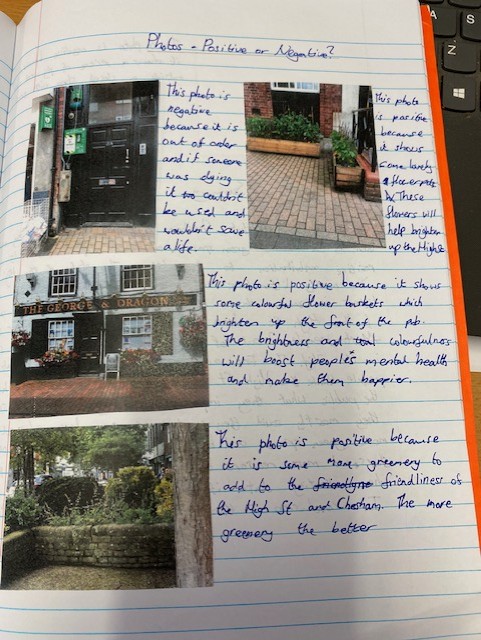 Photos - Positive or Negative?
This photo is
negative
because it is
out of order
and if someone
was dying
it couldn't
be used and
wouldn't save
a life.
This photo
is positive
because
it shows
some lovely
flowerpots
These
flowers will
help brighten
up the High St
THE GEORGE & DRAGON
This photo is positive because it shows
some colourful flower baskets which
brighten up the front of the pub.
The brightness and colourfulness
will boost people's mental health
and make them happier.
This photo is positive because
it is some more greenery to
add to the friendliness of
the High St and Chesham. The more
greenery the better
A
S
Z